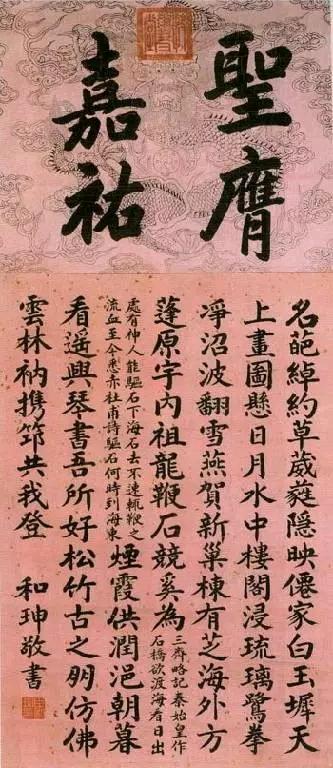 聖膺
嘉祐
名葩綽約草葳蕤隱映僊家白玉墀天
上畫圖懸日月水中樓閣浸琉璃鷺拳
淨沼波翻雪燕賀新巢棟有芝海外方
蓬原宇內祖龍鞭石競奚為
三齊略記秦始皇作
石橋欲渡海看日出
處有神人能驅石下海石去不速輒鞭之
流血至今悉赤杜甫詩驅石何時到海東
煙霞供潤浥朝暮
看遙興琴書吾所好松竹古之朋仿佛
雲林衲携筇共我登 和珅敬書